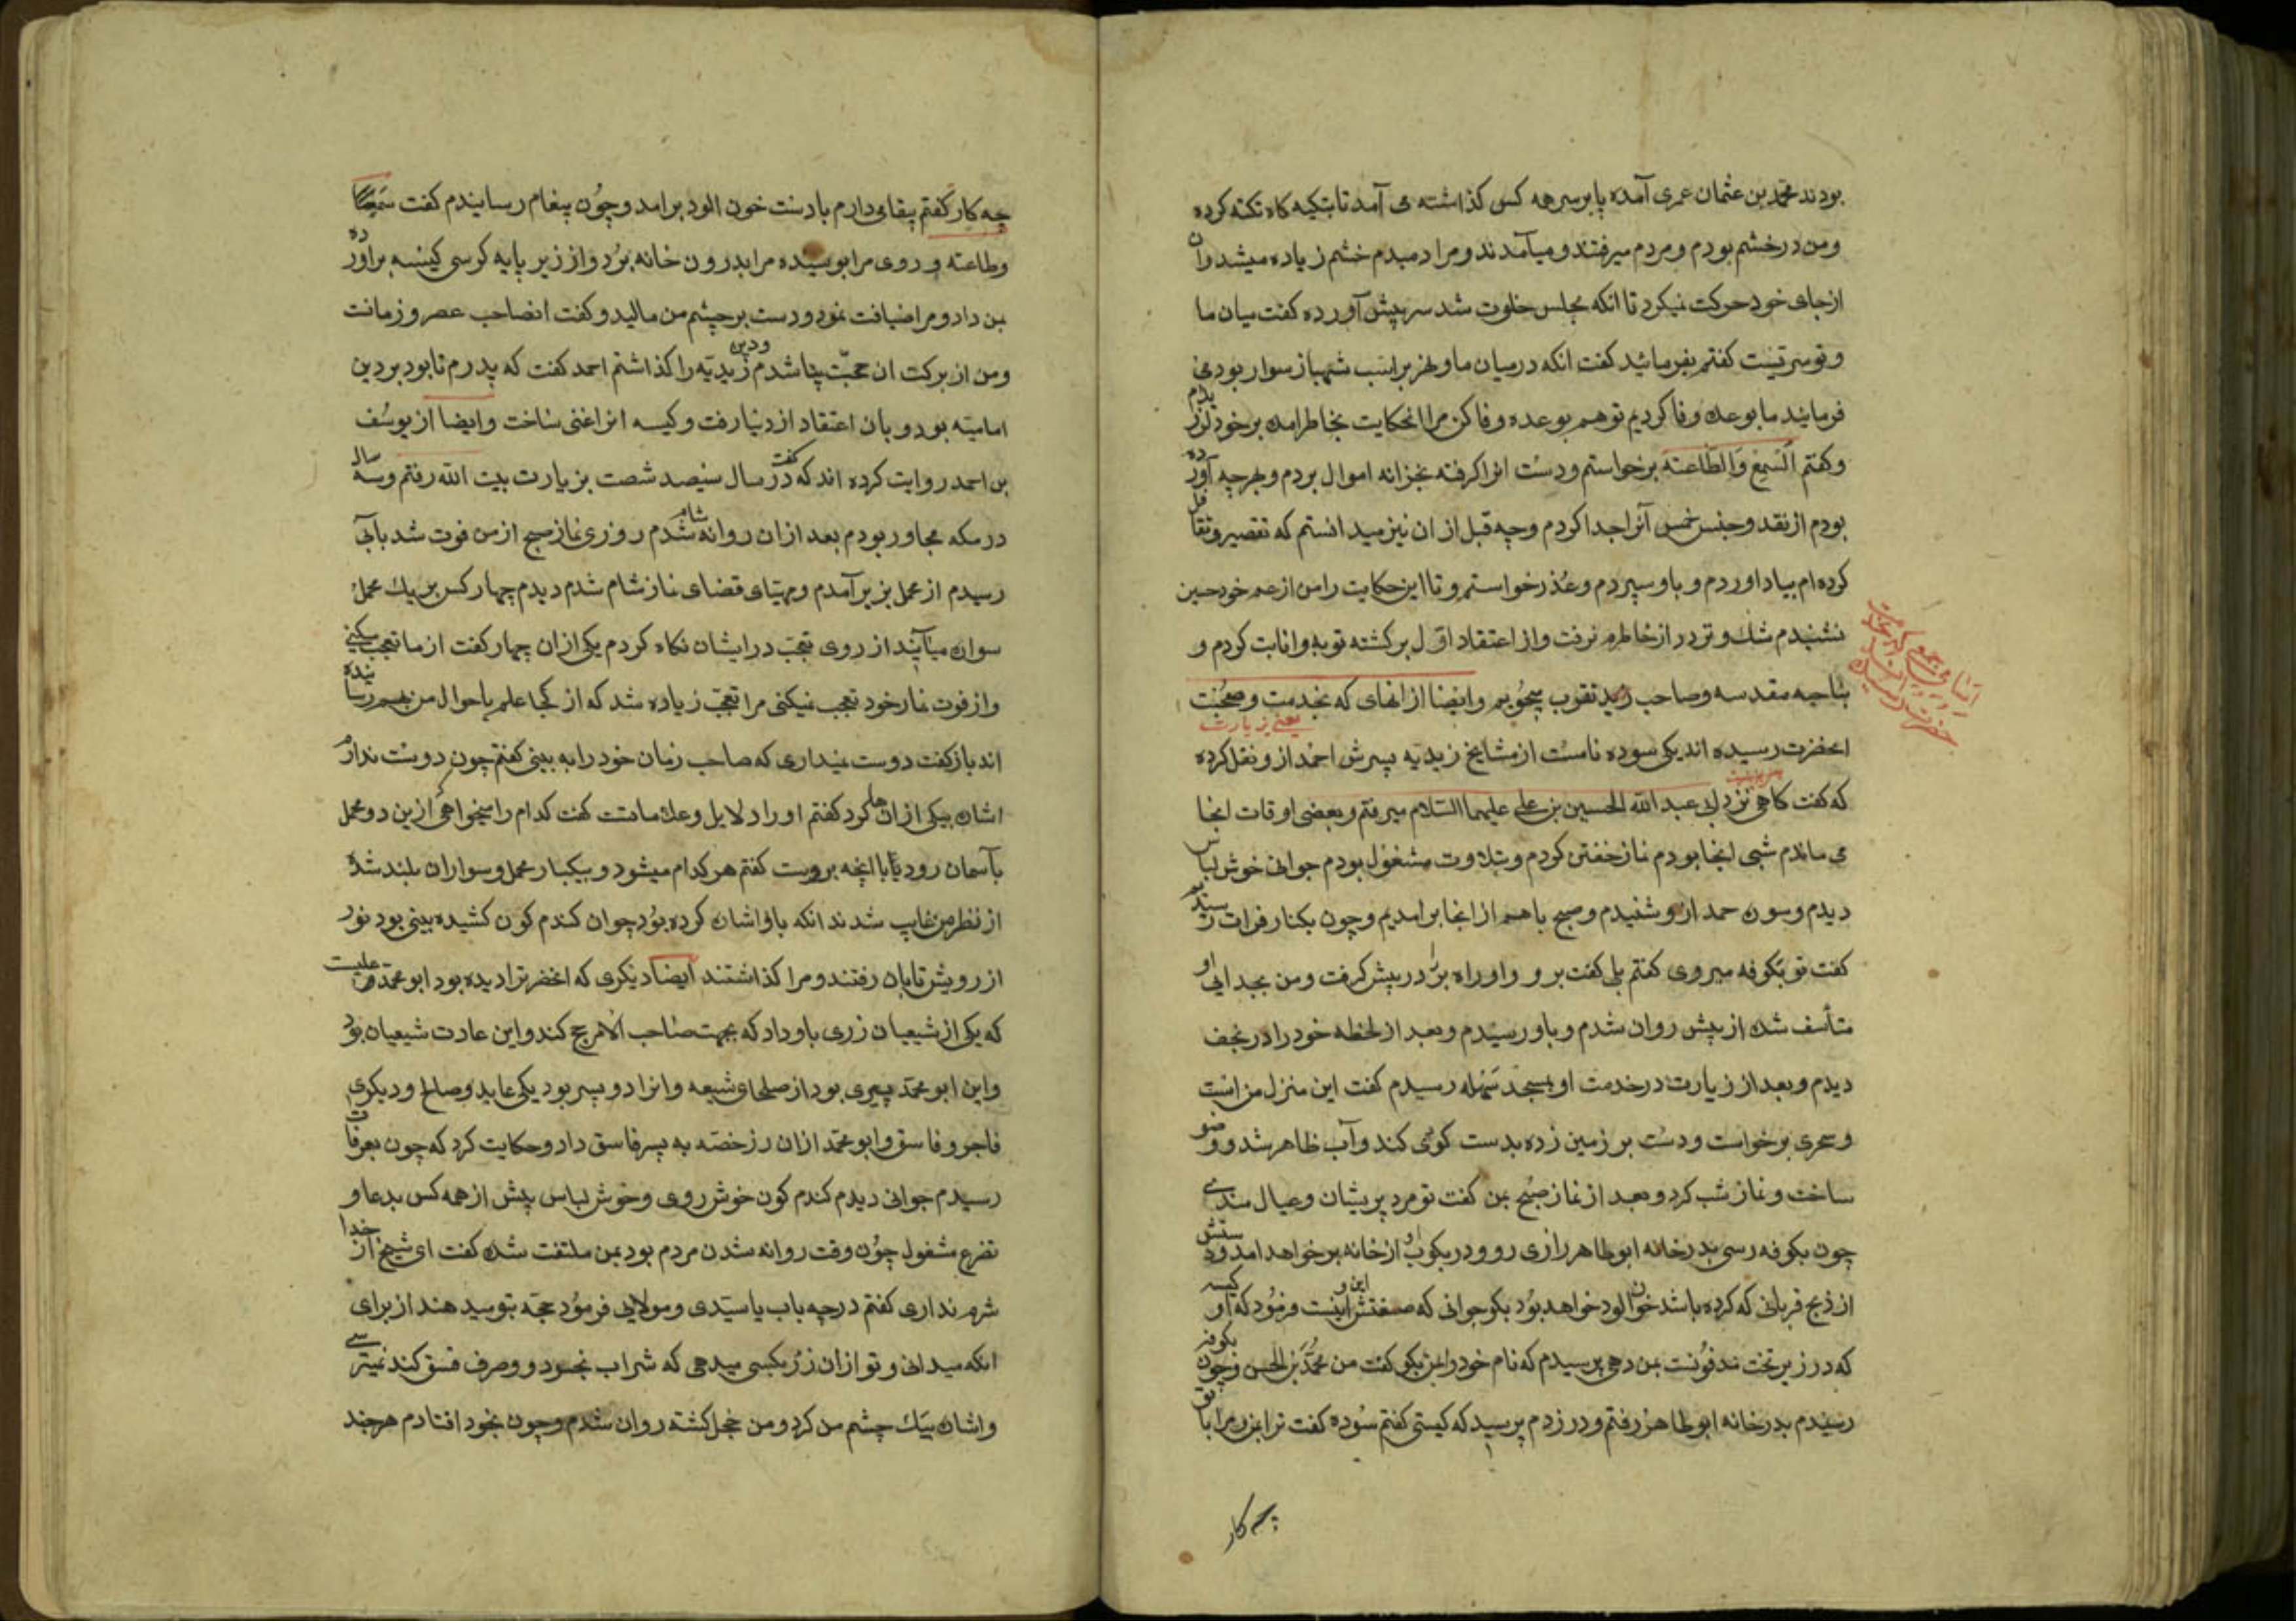 بودند محمّد بن عثمان عمری آمده پا بر سر همه کس گذاشته می آمد تا بتکیه کاه تکیه کرده
و من در خشم بودم و مردم میرفتند و میآمدند و مرا دمبدم خشم زیاده میشد و ان
از جای خود حرکت نمیکرد تا انکه مجلس خلوت شد سر پیش آورده کفت میان ما
و تو سرّیست کفتم بفرمائید کفت انکه در میان ما و نهر بر اسب شهباز سوار بود می
فرمایند ما بوعده وفا کردیم تو هم بوعده وفا کن مرا انحکایت بخاطر امده بر خود لرزیدم
و کفتم السَمع وَالطاعته برخواستم و دست انرا کرفته بخزانه اموال بردم و بهر چه آورده
بودم از نقد و جنس خمس آنرا جدا کردم و چه قبل از ان نیز میدانستم که تقصیر و تغافل
کرده ام بیاد اوردم و باو سپردم و عُذر خواستم و تا این حکایت را من از عم خود حسین
نشنیدم شك و تردد از خاطرم نرفت و از اعتقاد اوّل برکشته توبه و انابت کردم و
بناحیه مقدسه و صاحب تقرب بجوُیم و ایضا از انهای که بخدمت و صحبت
یعنی بزیارت
انحضرت رسیده اند یکی سوده نامست از مشایخ زیدیه پسرش احمَد ازو نقل کرده
که کفت کاهی نزد ابی عبد الله الحسین بن علی علیهما السّلام میرفتم و بعضی اوقات انجا
می ماندم شبی انجا بودم نماز خفتن کردم و بتلاوت مشغول بودم جوانی خوش لباس
دیدم و سوره حمد ازو شنیدم و صبح با هم از انجا برامدیم و چون بکنار فرات رسیدیم
کفت تو بکوفه میروی کفتم بلی کفت برو و او راه بر در پیش کرفت و من بجدایی او
متأسف شده از پیش روان شدم و باو رسیدم و بعد از لحظه خود را در نجف
دیدم و بعد از زیارت در خدمت او بمسجد سَهله رسیدم کفت این منزل من است
و سحری برخواست و دست بر زمین زده بدست کوی کند و آب ظاهر شد و وضو
ساخت و نماز شب کرد و بعد از نماز صبُح بمن کفت تو مرد پریشان و عیال مندی
چون بکوفه رسی بدر خانه ابو طاهر رازی رو و در بکوب او از خانه بر خواهد امد و دستش
از ذبح قربانی که کرده باشد خون الود خواهد بوُد بکو جوانی که صفتش این و اینست فرموُد که آن کیسه
که در زیر تخت مدفوُنست بمن دهی پرسیدم که نام خود را بمن بکو کفت من محمّد بن الحسن و چون بکوفه
رسیدم بدر خانه ابو طاهر رفتم و در زدم پرسید که کیستی کفتم سوُده کفت ترا بمن و مرا با تو
چه کار
چه کار کفتم پیغامی دارم با دست خون الود برامد و چوُن پیغام رسانیدم کفت سَمعًا
و طاعته و روی مرا بوسیده مرا بدرون خانه برُد و از زیر پایه کرسی کیسه براورده
بمن داد و مرا ضیافت نموُد و دست بر چشم من مالید و کفت انصاحب عصر و زمانست
و من از برکت ان حجّت بینا شدم و دین زیدیّه را کذاشتم احمد کفت که پدرم تا بود بر دین
امامیّه بود و بان اعتقاد از دنیا رفت و کیسه انرا غنی ساخت و ایضا از یوسُف
بن احمد روایت کرده اند که کفت در سال سیصد شصت بزیارت بیت الله رفتم و سه سال
در مکه مجاور بودم بعد از ان روانه شام شدم روزی نماز صبح از من فوت شد بآبی
رسیدم از محمل بزیر آمدم و مهیّای قضای نماز شام شدم دیدم چهار کس بر یك محمل
سواره میآیند از روی تعجّب در ایشان نکاه کردم یکی از ان چهار کفت از ما تعجّب میکنی
و از فوت نماز خود تعجب نمیکنی مرا تعجّب زیاده شد که از کجا علم باحوال من بهم رسانیده
اند باز کفت دوست میداری که صاحب زمان خود را به بینی کفتم چون دوست ندارم
اشاره بیکی از انها کرد کفتم او را دلایل و علاماتست کفت کدام را میخواهی ازین دو محمل
بآسمان رود یا با انچه بروست کفتم هر کدام میشود و بیکبار محمل و سواران بلند شد
از نظر من غایب شدند انکه باو اشاره کرده بوُد جوان کندم کون کشیده بینی بود نور
از رویش تابان رفتند و مرا کذاشتند ایضا دیکری که انحضرت را دیده بود ابو محمّد
که یکی از شیعیان زری باو داد که بجهت صَاحب الاَمر حج کند و این عادت شیعیان بوُد
و این ابو محمّد پیری بود از صلحای شیعه و انرا دو پسر بود یکی عابد و صالح و دیکری
فاجر و فاسق و ابو محمّد از ان زر حصّه به پسر فاسق داد و حکایت کرد که چون بعرفات
رسیدم جوانی دیدم کندم کون خوش روی و خوش لباس پیش از همه کس بدعا و
تضرع مشغول چوُن وقت روانه شدن مردم بود بمن ملتفت شده کفت ای شیخ از خدا
شرم نداری کفتم در چه باب یا سیّدی و مولایی فرموُد حجّه بتو میدهند از برای
انکه میدانی و تو از ان زر بکسی میدهی که شراب بخورد و صرف فسق کند نمیترسی
و اشاره بیك چشم من کرد و من خجل کشته روان شدم و چون بخود افتادم هر چند